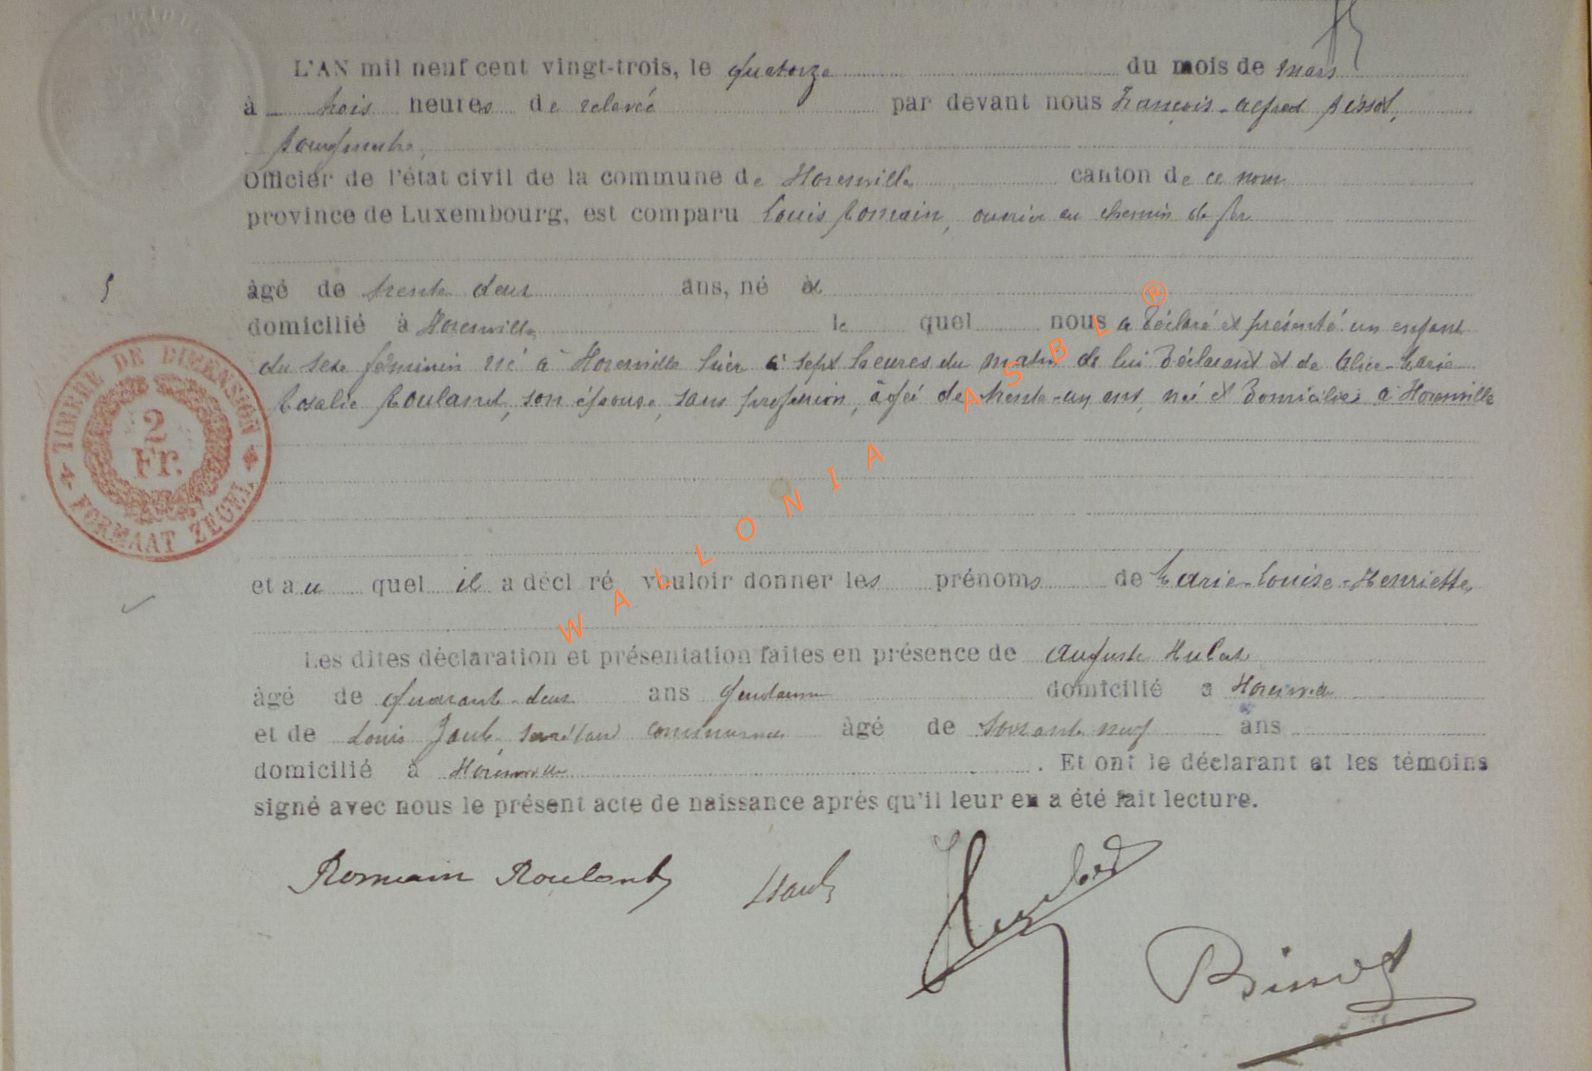 L'AN mil neuf cent vingt-trois, le quatorze du mois de mars
à trois heures de relevée par devant nous François-Alfred Binsot,
bourgmestre,
Officier de l'état civil de la commune de Horenville canton de ce nom
province de Luxembourg, est comparu Louis Romain, ouvrier au chemin de fer
5
âgé de trente deux ans, né à
domicilié à Horenville le quel nous a déclaré et présenté un enfant
du sexe féminin né à Horenville hier à sept heures du matin de lui déclarant et de Alice-Marie
Rosalie Roulant, son épouse, sans profession, âgée de trente-un ans, née et domiciliée à Horenville
TIMBRE DE DIMENSION
2
Fr.
FORMAAT ZEGEL
et au quel il a décl ré vouloir donner les prénoms de Marie-Louise-Henriette
Les dites déclaration et présentation faites en présence de Auguste Hubert
âgé de quarante-deux ans gendarme domicilié à
et de Louis secrétaire communal âgé de soixante neuf ans
domicilié à Horenville . Et ont le déclarant et les témoins
signé avec nous le présent acte de naissance après qu'il leur en a été fait lecture.
Romain Roulant
WALLONIA ASBL ®